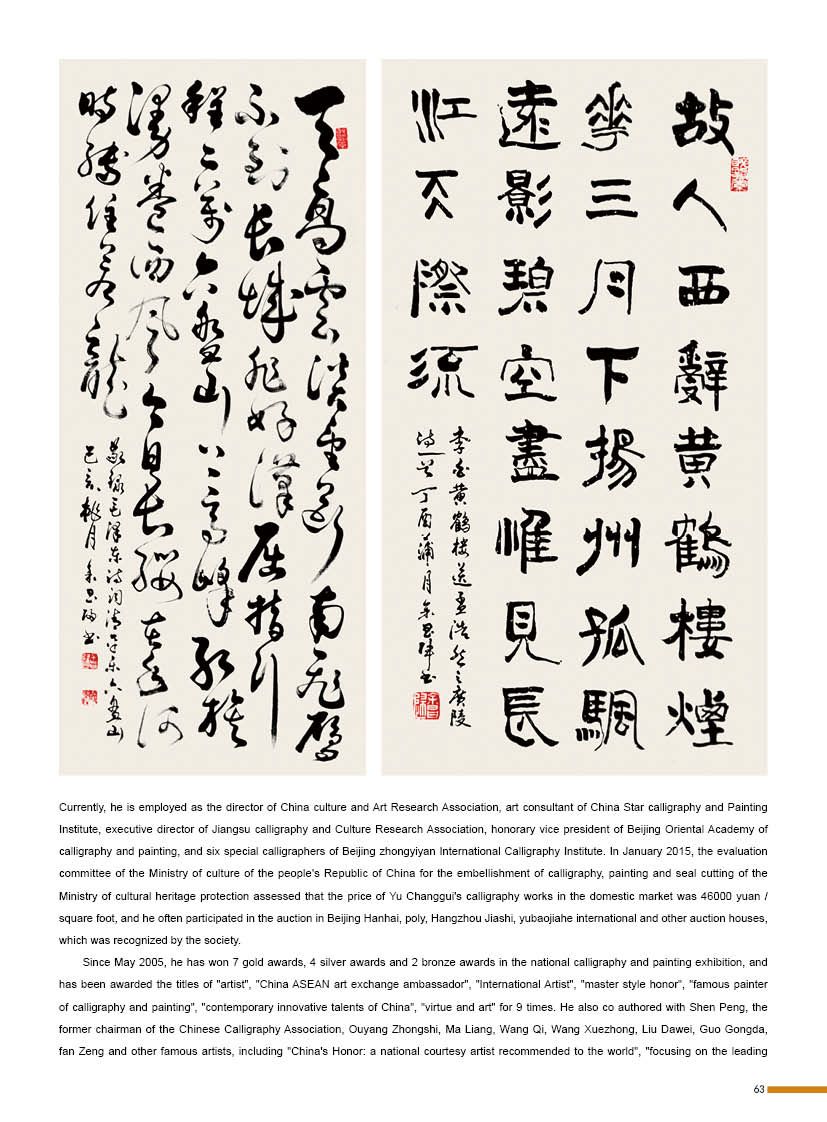 天高雲淡望斷南飛雁
不到長城非好漢屈指行
程二萬六盤山上高峰紅旗
漫卷西風今日長纓在手何
時縛住蒼龍
敬録毛澤東诗词清平乐六盘山
己亥桃月 书
故人西辭黄鶴樓煙
華三月下揚州孤颿
遠影碧空盡惟見長
江天際流
李白黄鶴楼送孟浩然之廣陵
诗一首丁酉蒲月 书
Currently, he is employed as the director of China culture and Art Research Association, art consultant of China Star calligraphy and Painting
Institute, executive director of Jiangsu calligraphy and Culture Research Association, honorary vice president of Beijing Oriental Academy of
calligraphy and painting, and six special calligraphers of Beijing zhongyiyan International Calligraphy Institute. In January 2015, the evaluation
committee of the Ministry of culture of the people's Republic of China for the embellishment of calligraphy, painting and seal cutting of the
Ministry of cultural heritage protection assessed that the price of Yu Changgui's calligraphy works in the domestic market was 46000 yuan /
square foot, and he often participated in the auction in Beijing Hanhai, poly, Hangzhou Jiashi, yubaojiahe international and other auction houses,
which was recognized by the society.
Since May 2005, he has won 7 gold awards, 4 silver awards and 2 bronze awards in the national calligraphy and painting exhibition, and
has been awarded the titles of "artist", "China ASEAN art exchange ambassador", "International Artist", "master style honor", "famous painter
of calligraphy and painting", "contemporary innovative talents of China", "virtue and art" for 9 times. He also co authored with Shen Peng, the
former chairman of the Chinese Calligraphy Association, Ouyang Zhongshi, Ma Liang, Wang Qi, Wang Xuezhong, Liu Dawei, Guo Gongda,
fan Zeng and other famous artists, including "China's Honor: a national courtesy artist recommended to the world", "focusing on the leading
63